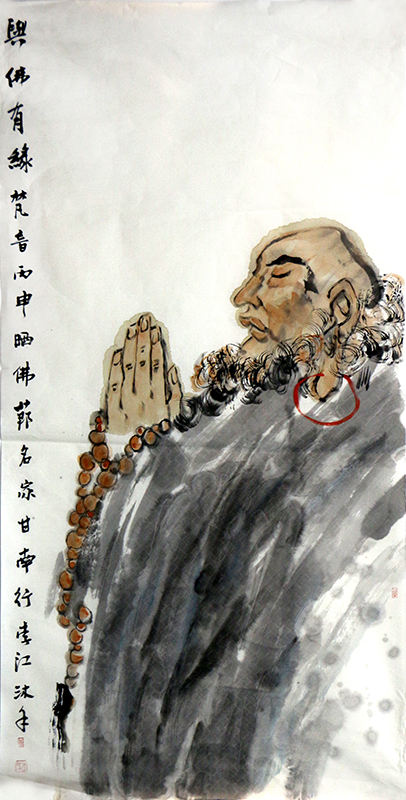 與佛有緣梵音丙申晒佛節名家甘南行李江沐手